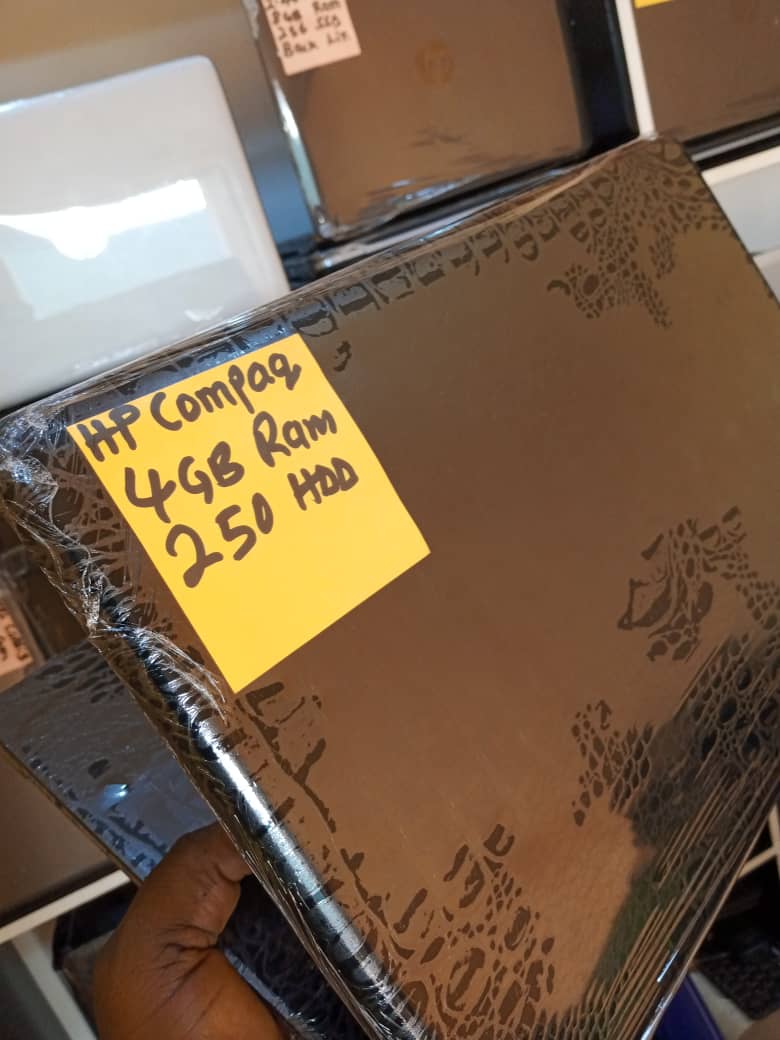 8GB Ram
256 SSD
Back Lit
HP Compaq
4GB Ram
250 HDD